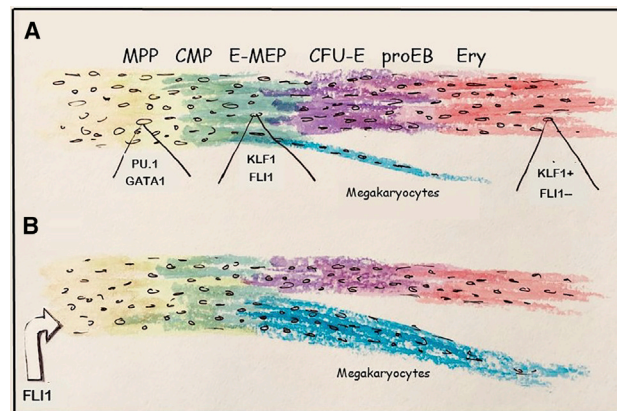 A
MPP CMP E-MEP CFU-E proEB Ery
PU.1
GATA1
KLF1
FLI1
KLF1+
FLI1–
Megakaryocytes
B
FLI1
Megakaryocytes